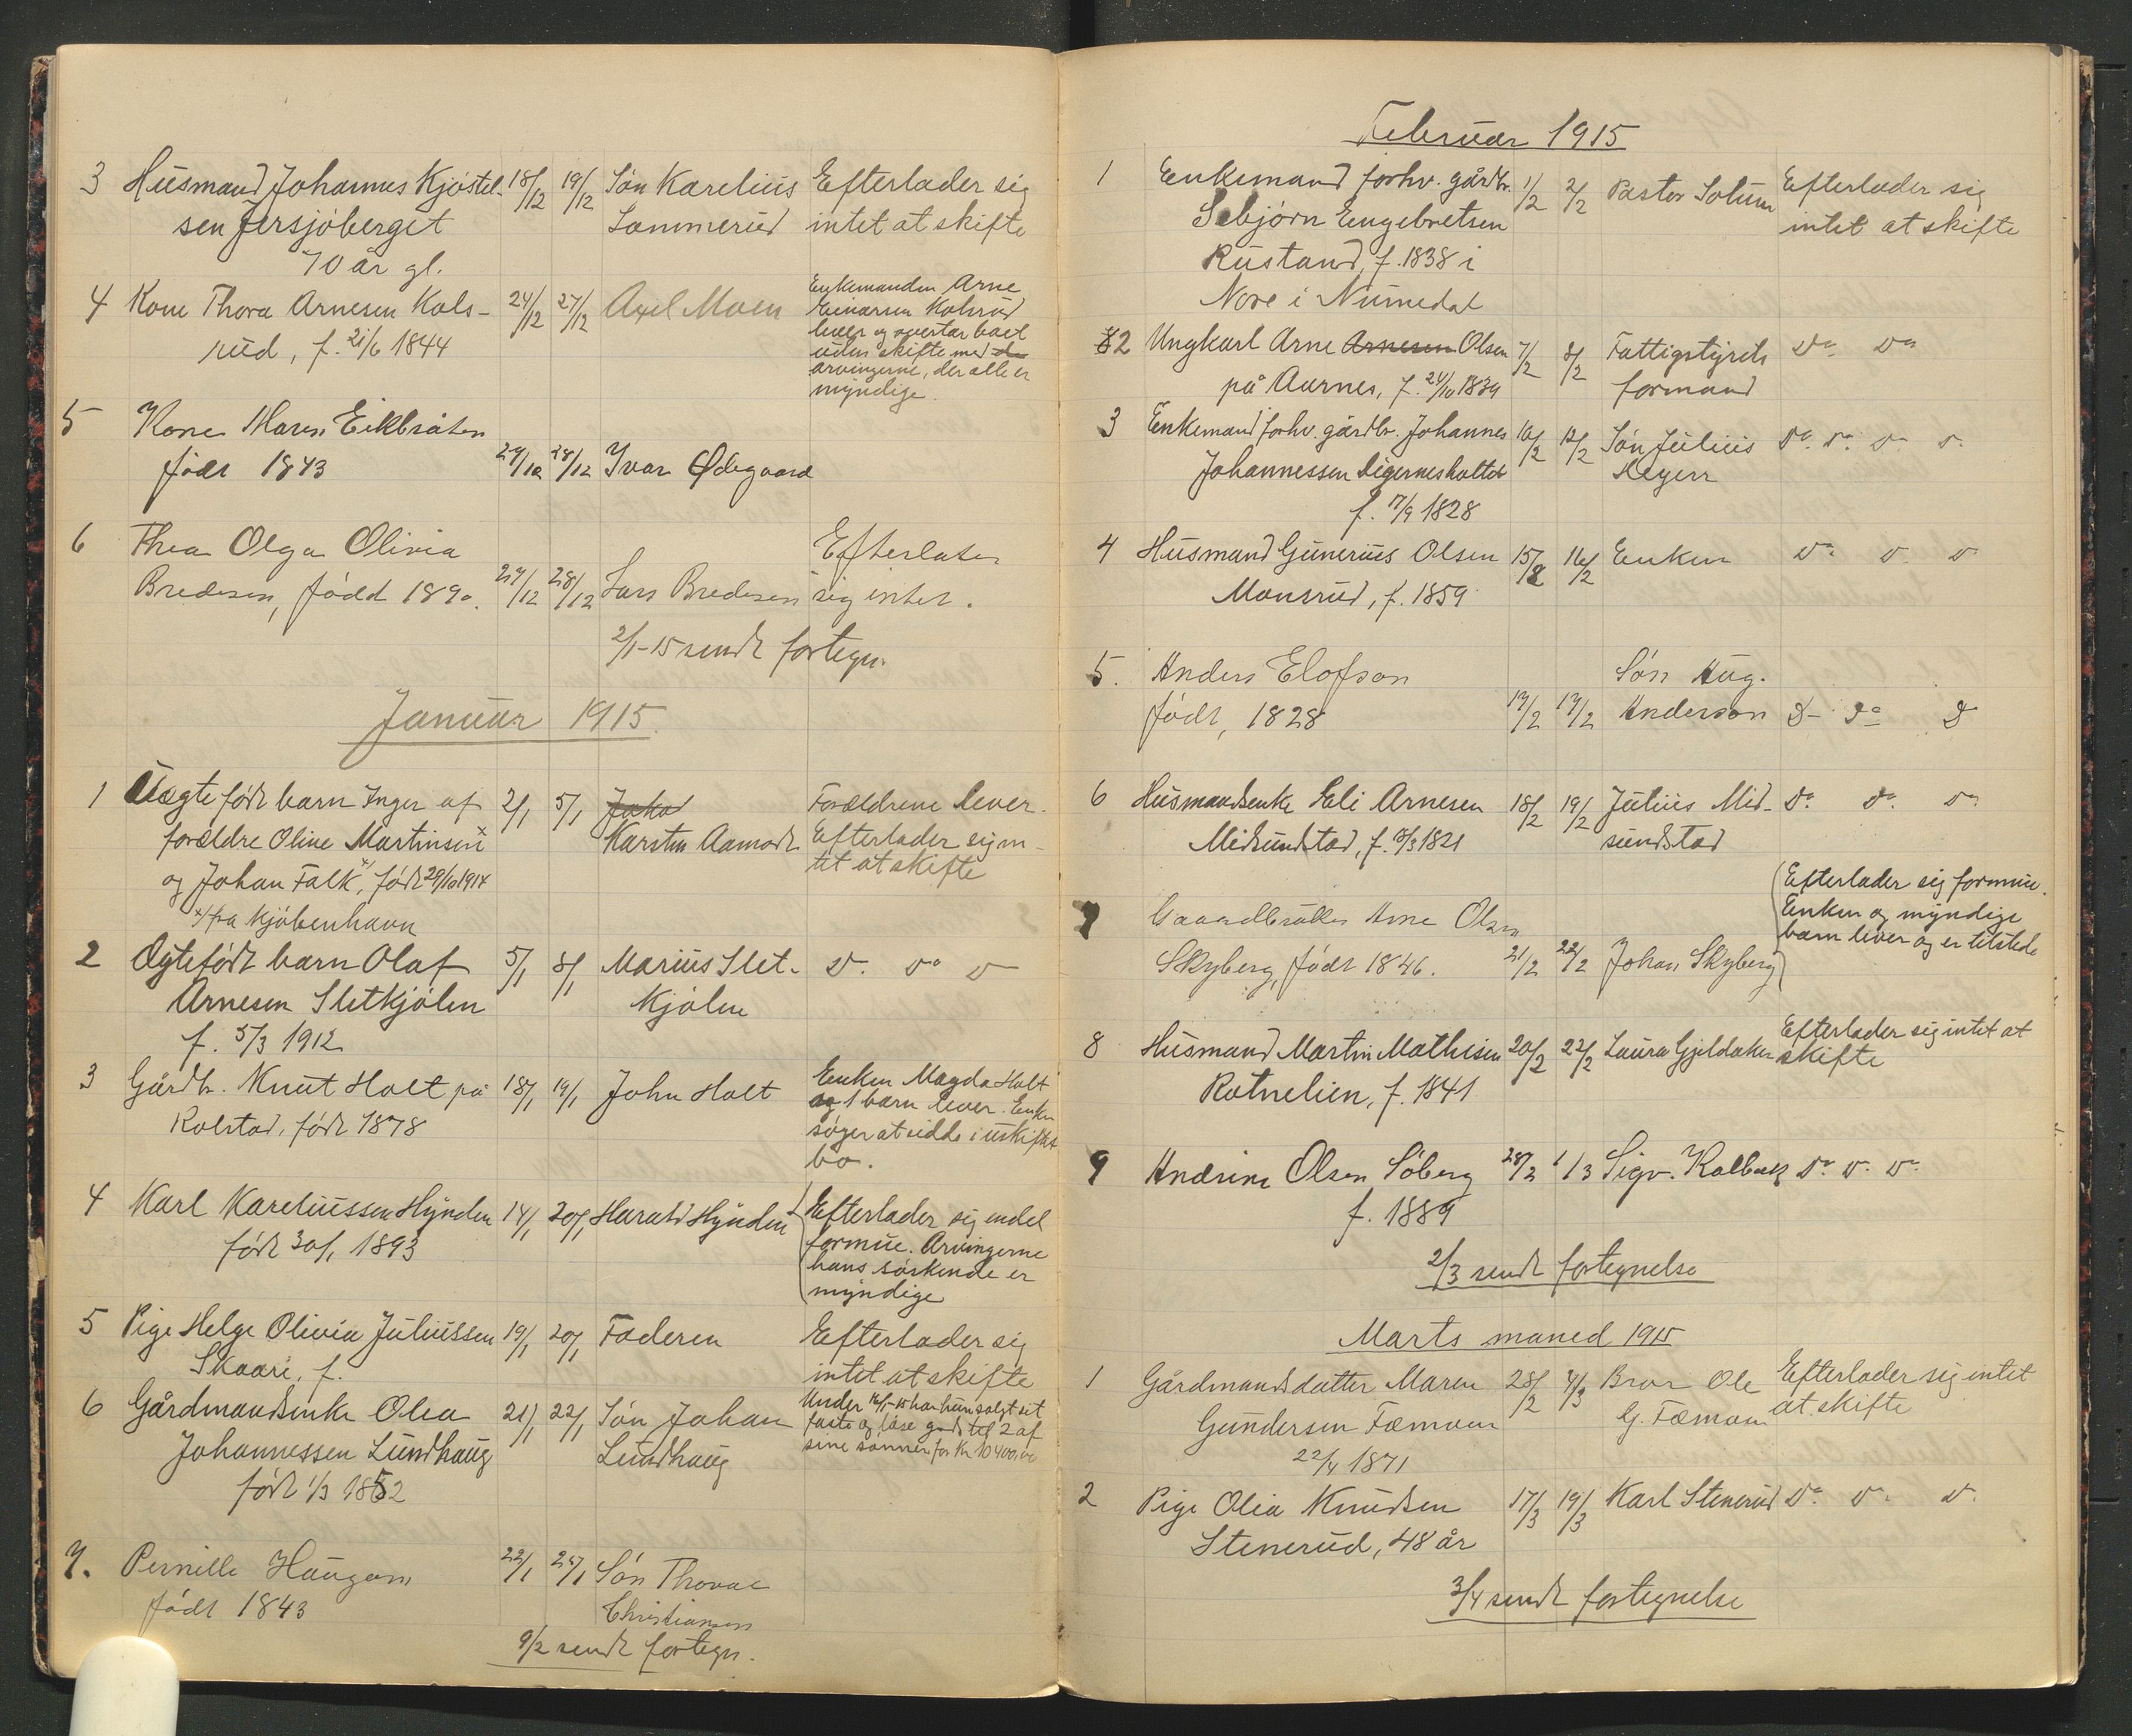 3 Husmand Johannes Kjöstel- 18/12 19/12 Sön Karelius Efterlader sig
sen Fersjöberget Sammerud intet at skifte
70 år gl.
4 Kone Thora Arnesen Kols- 24/12 27/12 Axel Moen Enkemanden Arne
rud, f. 21/6 1844 Einarsen Kolsrud
lever og overtar boet
uden skifte med de
arvingerne, der alle er
myndige.
5 Kone Maren Eikbråten
födt 1843 27/12 28/12 Ivar Ødegaard
6 Thea Olga Olivia Efterlater
Bredesen, född 1890. 27/12 28/12 Lars Bredesen sig intet.
2/1-15 sendt fortegn.
Januar 1915.
1 Uægte födt barn Inger af 2/1 5/1 Jako Forældrene lever.
forældre Oline Martinsen x Karsten Aamodt Efterlader sig in-
og Johan Falk x/, födt 29/10 1914 tet at skifte
x/ fra Kjöbenhavn
2 Ægtefödt barn Olaf 5/1 8/1 Marius Slet- Do Do Do
Arnesen Sletkjölen kjölen
f. 5/3 1912
3 Gårdbr. Knut Holt på 18/1 19/1 John Holt Enken Magda Holt
Kolstad, födt 1878 og 1 barn lever. Enken
söger at sidde i uskiftet
bo.
4 Karl Kareliussen Hynden 14/1 20/1 Harald Hynden Efterlader sig endel
födt 30/1 1893 formue. Arvingerne
hans söskende er
myndige
5 Pige Helge Olivia Juliussen 19/1 20/1 Faderen Efterlader sig
Skaare, f. intet at skifte
6 Gårdmandsenke Olea 21/1 22/1 Sön Johan Under 16/1-15 har hun solgt sit
Johannessen Lundhaug Lundhaug faste og löse gods til 2 af
födt 1/3 1852 sine sönner for Kr 10400,00
7. Pernille Haugen 22/1 25/1 Sön Thorval
födt 1843 Christiansen
9/2 sendt fortegn.
Februar 1915
1 Enkemand forhv. gårdbr. 1/2 2/2 Pastor Solum Efterlader sig
Sebjörn Engebretsen intet at skifte
Rustand, f. 1838 i
Nore i Numedal
2 Ungkarl Arne Arnesen Olsen 7/2 8/2 Fattigstyrets Do Do
på Aarnes, f. 24/10 1839 formand
3 Enkemand forhv. gårdbr. Johannes 10/2 12/2 Sön Julius Do Do Do Do
Johannessen Digernesholtet Degerr
f. 17/9 1828
4 Husmand Gunerius Olsen 15/2 16/2 Enken Do Do Do
Monsrud, f. 1859
5. Anders Elofson Sön Aug.
födt, 1828 17/2 17/2 Anderson D- Do D
6 Husmandsenke Eli Arnesen 18/2 19/2 Julius Mid- Do Do Do
Midsundstad, f. 8/3 1821 sundstad
Efterlader sig formue.
7 Gaardbruker Arne Olsen Enken og myndige
barn lever og er tilstede
Skyberg, födt 1846. 21/2 22/2 Johan Skyberg
8 Husmand Martin Mathisen 20/2 22/2 Laura Gjeldaker Efterlader sig intet at
Rotnelien, f. 1841 skifte
9 Andrine Olsen Söberg 28/2 1/3 Sigv. Kolbæk Do Do Do
f. 1889
2/3 sendt fortegnelse
Marts maned 1915
1 Gårdmandsdatter Maren 28/2 4/3 Bror Ole Efterlader sig intet
Gundersen Fæmoen G. Fæmoen at skifte
22/4 1871
2 Pige Olia Knudsen 17/3 19/3 Karl Stenerud Do Do Do
Stenerud, 48 år
3/4 sendt fortegnelse